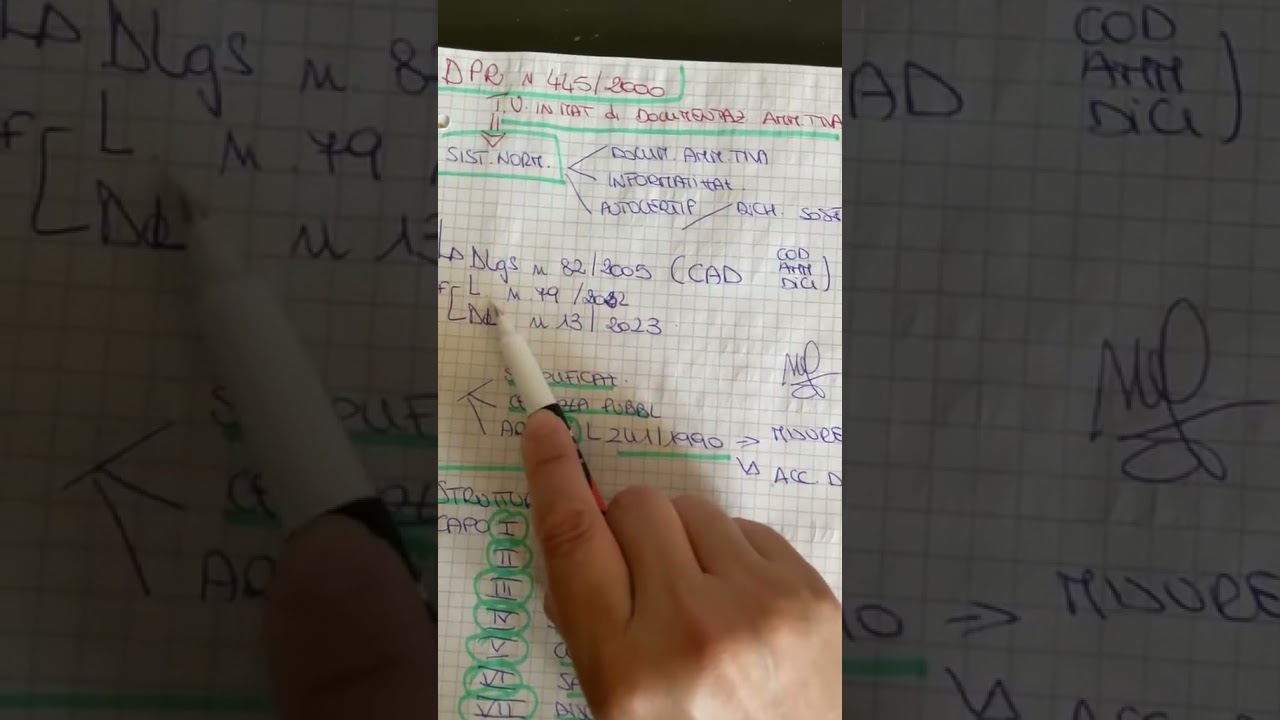 DPR n 445/2000
T.U. IN MAT di DOCUMENTAZ AMM TIVA
SIST. NORM.
DOCUM. AMM TIVA
INFORMATIZZAT.
AUTOCERTIF / DICH. SOST
Dlgs n 82/2005 (CAD COD AMM DIGI)
L n. 79 /2022
DL n 13 / 2023.
PUBBL
L 241/1990 → MISURE
ACC. D
STRUTTU
CAPO I
II
III
IV
V
VI
VII